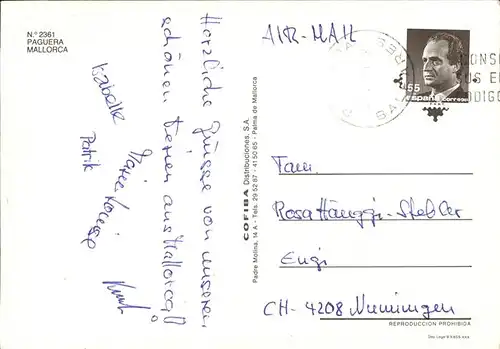 N.º 2361
PAGUERA
MALLORCA
Herzliche Grüsse von unseren
schönen Ferien aus Mallorca!!
Isabelle
Patrik
Kurt
COFIBA Distribuciones, S.A.
Padre Molina, 14 A - Tels. 29 52 87 - 41 50 65 - Palma de Mallorca
AIR-MAIL
55
España
correos
CONSI
US E
DIGO
Fam.
Rosa Hänggi-Stebler
Engi
CH-4208 Nunningen
REPRODUCCION PROHIBIDA